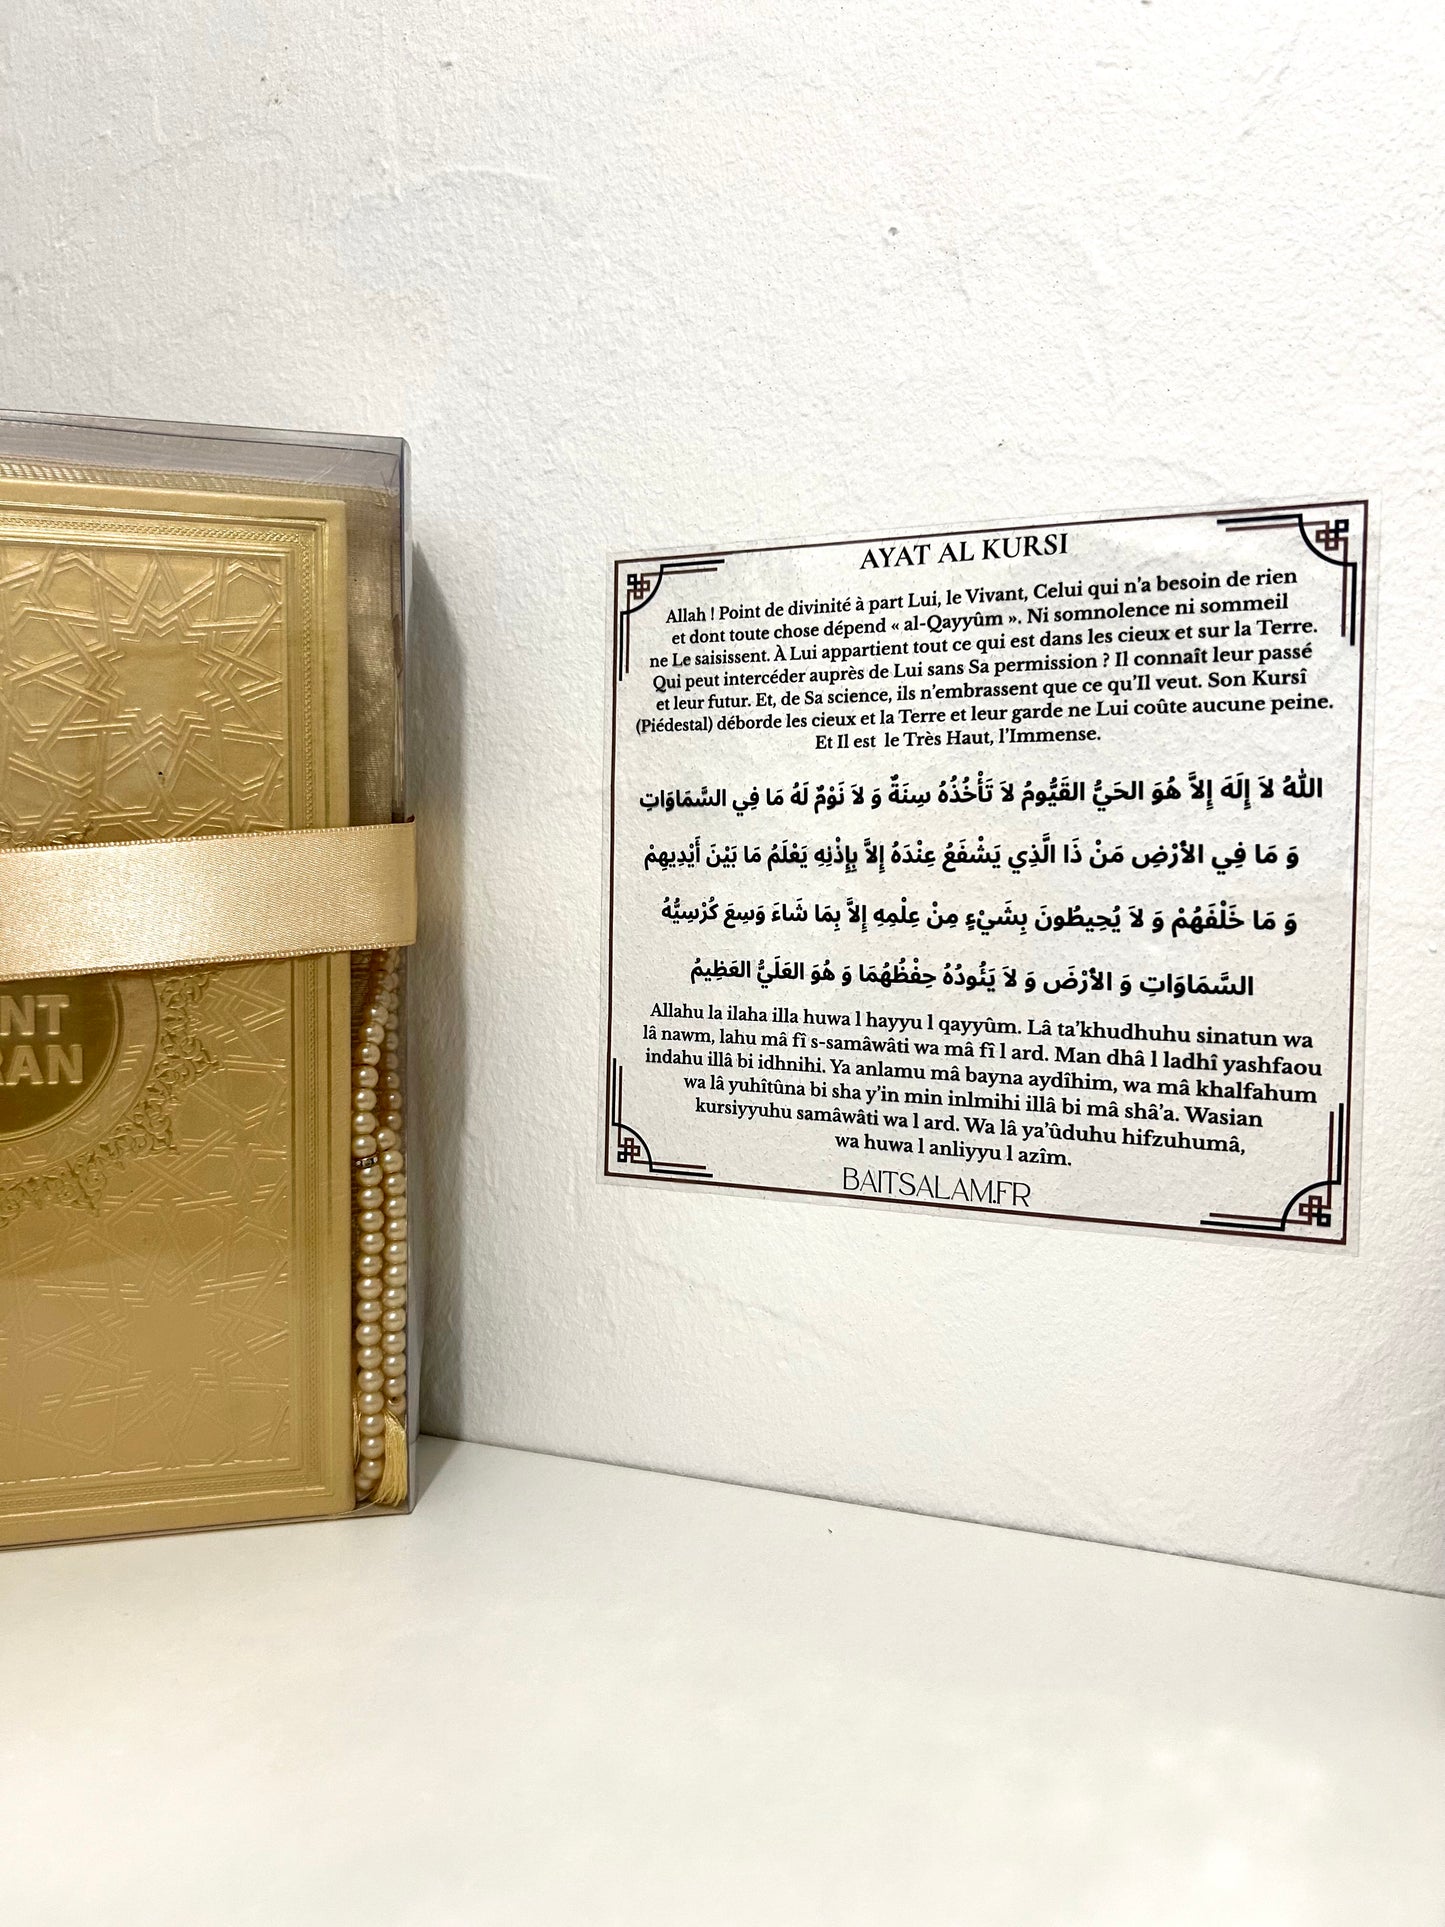 NT
RAN
AYAT AL KURSI
Allah ! Point de divinité à part Lui, le Vivant, Celui qui n’a besoin de rien
et dont toute chose dépend « al-Qayyûm ». Ni somnolence ni sommeil
ne Le saisissent. À Lui appartient tout ce qui est dans les cieux et sur la Terre.
Qui peut intercéder auprès de Lui sans Sa permission ? Il connaît leur passé
et leur futur. Et, de Sa science, ils n’embrassent que ce qu’Il veut. Son Kursî
(Piédestal) déborde les cieux et la Terre et leur garde ne Lui coûte aucune peine.
Et Il est le Très Haut, l’Immense.
اللهُ لاَ إِلَهَ إِلاَّ هُوَ الحَيُّ القَيُّومُ لاَ تَأْخُذُهُ سِنَةٌ وَ لاَ نَوْمٌ لَهُ مَا فِي السَّمَاوَاتِ
وَ مَا فِي الأَرْضِ مَنْ ذَا الَّذِي يَشْفَعُ عِنْدَهُ إِلاَّ بِإِذْنِهِ يَعْلَمُ مَا بَيْنَ أَيْدِيهِمْ
وَ مَا خَلْفَهُمْ وَ لاَ يُحِيطُونَ بِشَيْءٍ مِنْ عِلْمِهِ إِلاَّ بِمَا شَاءَ وَسِعَ كُرْسِيُّهُ
السَّمَاوَاتِ وَ الأَرْضَ وَ لاَ يَئُودُهُ حِفْظُهُمَا وَ هُوَ العَلَيُّ العَظِيمُ
Allahu la ilaha illa huwa l hayyu l qayyûm. Lâ ta’khudhuhu sinatun wa
lâ nawm, lahu mâ fî s-samâwâti wa mâ fî l ard. Man dhâ l ladhî yashfaou
indahu illâ bi idhnihi. Ya anlamu mâ bayna aydîhim, wa mâ khalfahum
wa lâ yuhîtûna bi sha y’in min inlmihi illâ bi mâ shâ’a. Wasian
kursiyyuhu samâwâti wa l ard. Wa lâ ya’ûduhu hifzuhumâ,
wa huwa l anliyyu l azîm.
BAITSALAM.FR